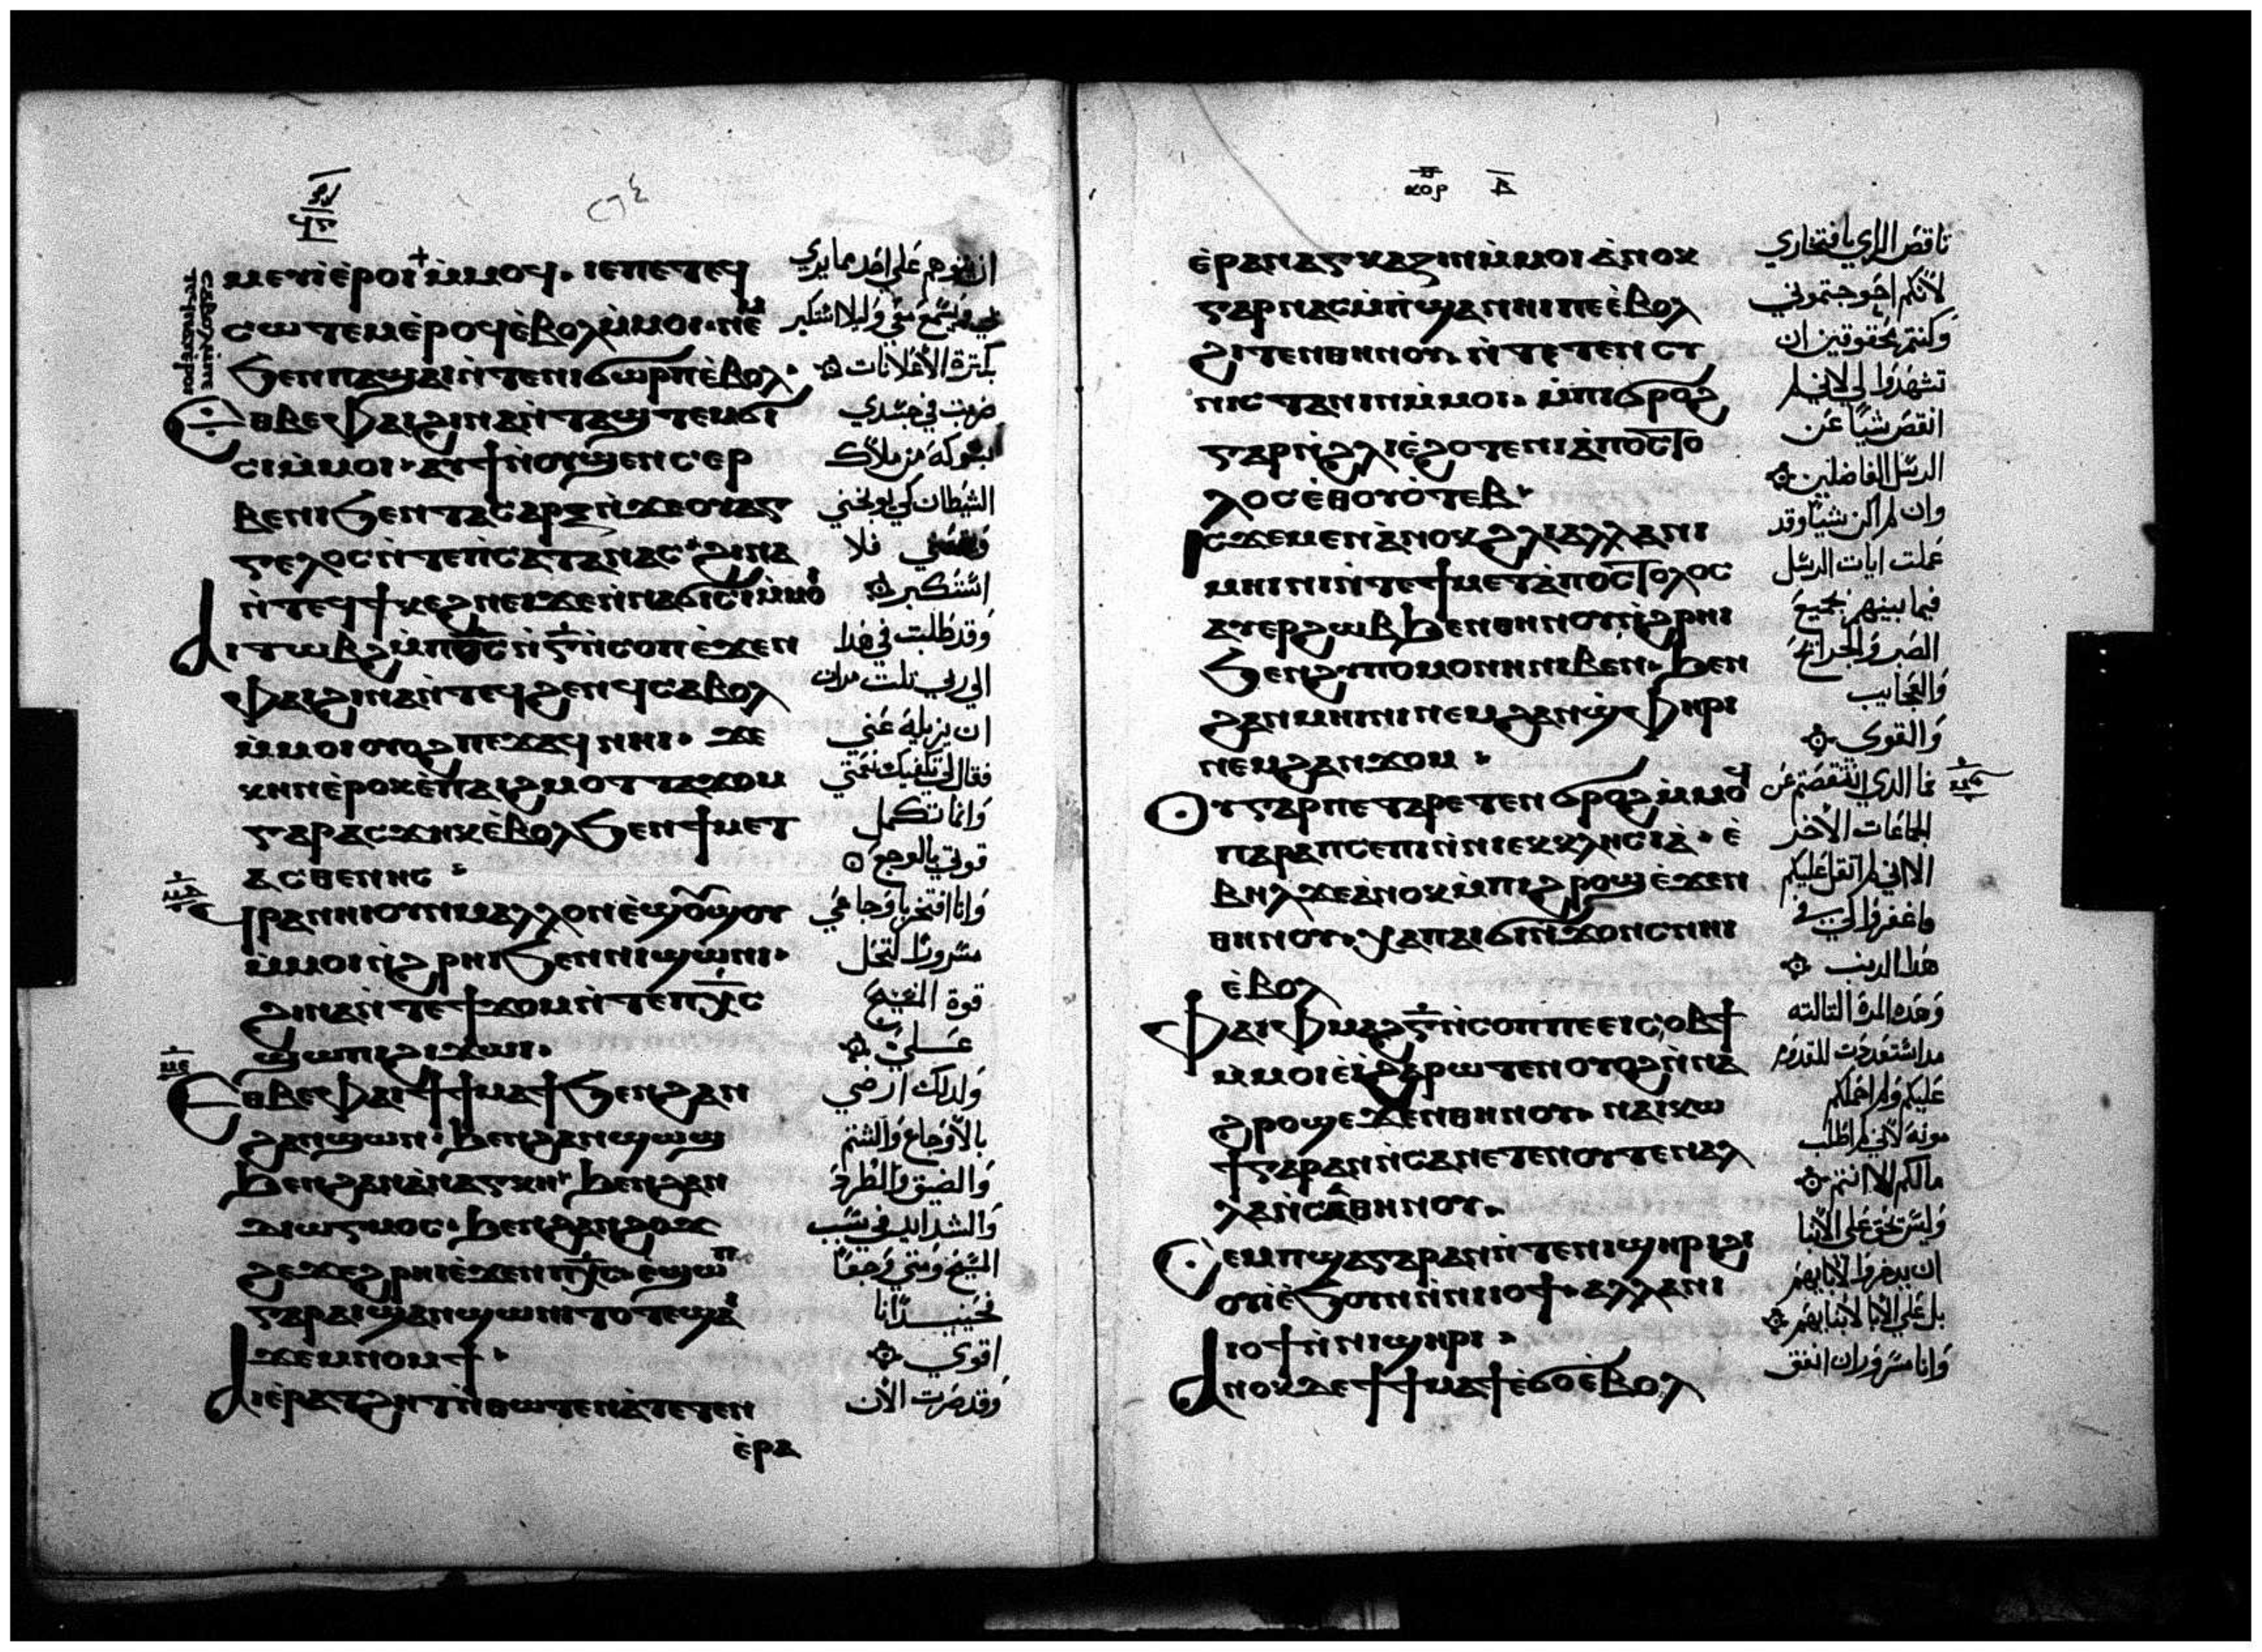 ⲙⲉⲩⲓⲉ̀ⲣⲟⲓ ⲙ̀ⲙⲟϥ. ⲓⲉⲡⲉⲧⲉϥ
ⲥⲱⲧⲉⲙⲉ̀ⲣⲟϥⲉ̀ⲃⲟⲗⲙ̀ⲙⲟⲓ.
ϧⲉⲛⲡⲁϣⲁⲓⲛ̀ⲧⲉⲛⲓϭⲱⲣⲡⲉ̀ⲃⲟⲗ.
ⲉⲑⲃⲉⲫⲁⲓϩⲓⲛⲁⲛ̀ⲧⲁϣⲧⲉⲙϭⲓ
ⲥⲓⲙ̀ⲙⲟⲓ. ⲁⲩϯⲛ̀ⲟⲩϣⲉⲛⲥⲉⲣ
ⲃⲉⲛⲓϧⲉⲛⲧⲁⲥⲁⲣⲝⲛ̀ϫⲉⲟⲩⲁⲅ
ⲅⲉⲗⲟⲥⲛ̀ⲧⲉⲡ̀ⲥⲁⲧⲁⲛⲁⲥ. ϩⲓⲛⲁ
ⲛ̀ⲧⲉϥϯⲕⲉϩⲛⲉⲓϫⲉⲛ̀ⲛⲁϭⲓⲥⲓⲙ̀ⲙⲟ
ⲁⲓⲧⲱⲃϩⲙ̀ⲡⲟ̅ⲥ̅ⲛ̀ⲅ̅ⲛ̀ⲥⲟⲡⲉ̀ϫⲉⲛ
ⲫⲁⲓϩⲓⲛⲁⲛ̀ⲧⲉϥϩⲉⲛϥⲥⲁⲃⲟⲗ
ⲙ̀ⲙⲟⲓⲟⲩⲟϩⲡⲉϫⲁϥⲛⲏⲓ. ϫⲉ
ⲕⲏⲛⲉ̀ⲣⲟⲕⲉ̀ⲡⲁⲓϩⲙⲟⲧⲧⲁϫⲟⲙ
ⲅⲁⲣⲁⲥϫⲏⲕⲉ̀ⲃⲟⲗϧⲉⲛϯⲙⲉⲧ
ⲁⲥⲑⲉⲛⲏⲥ
ⲣⲁⲛⲛⲓⲟⲩⲛⲙⲁⲗⲗⲟⲛⲉ̀ϣⲟⲩϣⲟⲩ
ⲙ̀ⲙⲟⲓⲛ̀ϩⲣⲏⲓϧⲉⲛⲛⲓϣⲱⲛⲓ.
ϩⲓⲛⲁⲛ̀ⲧⲉϯϫⲟⲙⲛ̀ⲧⲉⲡⲭ̅ⲥ
ϣⲱⲡⲓϩⲓϫⲱⲓ.
ⲉⲑⲃⲉⲫⲁⲓϯϯⲙⲁϯϧⲉⲛϩⲁⲛ
ϩⲁⲛϣⲱⲛ. ϧⲉⲛϩⲁⲛϣⲱϣ
ϧⲉⲛϩⲁⲛⲁ̀ⲛⲁⲅⲕⲏ. ϧⲉⲛϩⲁⲛ
ⲇⲓⲱⲅⲙⲟⲥ. ϧⲉⲛϩⲁⲛϩⲟϫ
ϩⲉϫϩⲣⲏⲓⲉ̀ϫⲉⲛⲡⲭ̅ⲥ. ⲉ̀ϣⲱⲡ
ⲅⲁⲣⲁⲓϣⲁⲛϣⲱⲛⲓⲧⲟⲧⲉϣⲁⲓ
ϫⲉⲙⲛⲟⲙϯ.
ⲁⲓⲉ̀ⲣⲁⲧϩⲏⲧⲛ̀ⲑⲱⲧⲉⲛⲁ̀ⲧⲉⲧⲉⲛ
ⲉ̀ⲣⲁ
بكثرة الاعلانات
ضربت في جسدي
بشوكة من ملاك
الشيطان كي يوبخني
فلا
استكبر
وقد طلبت في هذا
الي ربي تلت مرات
ان يزيله عني
فقال لي تكفيك نعمتي
وانما تكمل
قوتي بالوجع
وانا افتخر باوجاعي
مسرورا لتحل
قوة المسيح
علي
ولذلك ارضي
بالاوجاع والشتم
والضيق والطرد
والشدايد في سبب
المسيح ومتي وجعا
فحينيذ انا
اقوي
وقد صرت الان
ⲉ̀ⲣⲁⲛⲁⲅⲕⲁⲍⲓⲛⲙ̀ⲙⲟⲓⲁ̀ⲛⲟⲕ
ⲅⲁⲣⲛⲁⲥⲙ̀ⲡ̀ϣⲁⲛⲏⲓⲡⲉⲉ̀ⲃⲟⲗ
ϩⲓⲧⲉⲛⲑⲏⲛⲟⲩ. ⲛ̀ⲧⲉⲧⲉⲛⲥⲩ
ⲛⲓⲥⲧⲁⲛⲓⲛⲙ̀ⲙⲟⲓ. ⲙ̀ⲡⲓϭⲣⲟϩ
ⲅⲁⲣⲛ̀ϩⲗⲓⲉ̀ϩⲟⲧⲉⲛⲓⲁ̀ⲡⲟⲥⲧⲟ
ⲗⲟⲥⲉ̀ⲑⲟⲩⲟ̀ⲧⲉⲃ.
ⲓⲥϫⲉⲙⲉⲛⲁ̀ⲛⲟⲕϩⲗⲓⲁⲗⲗⲁⲛⲓ
ⲙⲏⲓⲛⲓⲛ̀ⲧⲉϯⲙⲉⲧⲁ̀ⲡⲟⲥⲧⲟⲗⲟⲥ
ⲁⲩⲉⲣϩⲱⲃϧⲉⲛⲑⲏⲛⲟⲩⲛ̀ϩⲣⲏⲓ
ϧⲉⲛϩⲩⲡⲟⲙⲟⲛⲏⲛⲓⲃⲉⲛ. ϧⲉⲛ
ϩⲁⲛⲙⲏⲓⲛⲓⲛⲉⲙϩⲁⲛϣⲫⲏⲣⲓ
ⲛⲉⲙϩⲁⲛϫⲟⲙ.
ⲟⲩⲅⲁⲣⲡⲉⲧⲁⲣⲉⲧⲉⲛϭⲣⲟϩⲙ̀ⲙⲟϥ
ⲡⲁⲣⲁⲡⲥⲉⲡⲓⲛ̀ⲛⲓⲉⲕⲕⲗⲏⲥⲓⲁ̀. ⲉ̀
ⲃⲏⲗϫⲉⲁ̀ⲛⲟⲕⲙ̀ⲡⲓϩⲣⲟϣⲉ̀ϫⲉⲛ
ⲑⲏⲛⲟⲩ. ⲭⲁⲡⲁⲓϭⲓⲛ̀ϫⲟⲛⲥⲛⲏⲓ
ⲉ̀ⲃⲟⲗ
ⲫⲁⲓⲫⲙⲁϩⲅ̅ⲛ̀ⲥⲟⲡⲡⲉⲉⲓⲥⲟⲃϯ
ⲙ̀ⲙⲟⲓⲉ̀ⲓ̀ϩⲁⲣⲱⲧⲉⲛⲟⲩⲟϩⲛ̀ⲛⲁ
ϩⲣⲟϣⲉϫⲉⲛⲑⲏⲛⲟⲩ. ⲛⲁⲓⲕⲱ
ϯⲅⲁⲣⲁⲛⲛ̀ⲥⲁⲛⲉⲧⲉⲛⲟⲩⲧⲉⲛⲁⲗ
ⲗⲁⲛ̀ⲥⲁⲑⲏⲛⲟⲩ.
ⲥⲉⲙⲡϣⲁⲅⲁⲣⲁⲛⲛ̀ⲧⲉⲛⲓϣⲏⲣⲓϩⲓ
ⲟⲩⲓⲉ̀ϧⲟⲩⲛⲛ̀ⲛⲓⲓⲟϯ. ⲁⲗⲗⲁⲛⲓ
ⲓⲟϯⲛ̀ⲛⲓϣⲏⲣⲓ.
ⲁⲛⲟⲕⲇⲉϯϯⲙⲁϯⲉ̀ϭⲟⲉ̀ⲃⲟⲗ
ناقص الراي بافتخاري
لانكم احوجتموني
وكنتم محقوقين ان
تشهدوا لي لاني لم
انقص شيا عن
الرسل الفاضلين
وان لم اكن شيا وقد
عملت ايات الرسل
فيما بينهم بجميع
الصبر والجرايح
والعجايب
والقوي
فما الدي انتقصتم عن
الجماعات الاخر
الا اني لم اثقل عليكم
فاغفروا لي
هذا الذنب
وهده المرة التالته
قد استعددت للقدوم
عليكم ولم احملكم
مونه لاني لم اطلب
مالكم الا انتم
وليس تحق علي الابنا
ان يدخروا لابايهم
بل علي الابا لابنايهم
وانا مسرور ان انفق